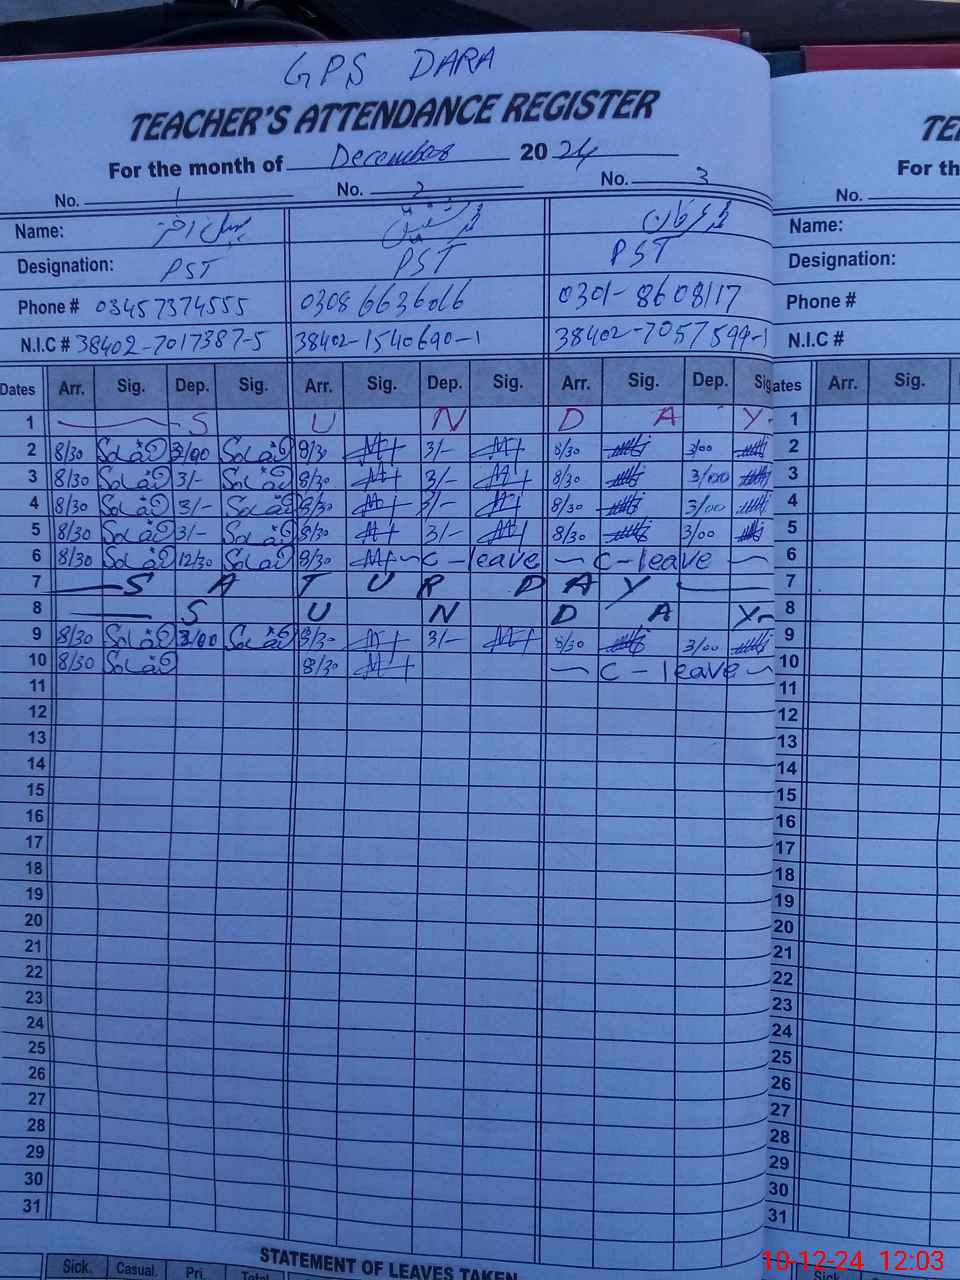 GPS DARA
TEACHER'S ATTENDANCE REGISTER
For the month of December 2024
No. 1 No. 2 No. 3 No.
Name: Name:
Designation: PST PST PST Designation:
Phone # 03457374555 0308 6636066 0301-8608117 Phone #
N.I.C # 38402-7017387-5 38402-1540690-1 38402-7057599-1 N.I.C #
Dates Arr. Sig. Dep. Sig. Arr. Sig. Dep. Sig. Arr. Sig. Dep. Sig Arr. Sig.
1 S U N D A Y 1
2 8/30 3/00 8/30 3/- 8/30 3/00 2
3 8/30 3/- 8/30 3/- 8/30 3/00 3
4 8/30 3/- 8/30 3/- 8/30 3/00 4
5 8/30 3/- 8/30 3/- 8/30 3/00 5
6 8/30 12/30 8/30 C-leave C-leave 6
7 S A T U R D A Y 7
8 S U N D A Y 8
9 8/30 3/00 8/30 3/- 8/30 3/00 9
10 8/30 8/30 C-leave 10
11 11
12 12
13 13
14 14
15 15
16 16
17 17
18 18
19 19
20 20
21 21
22 22
23 23
24 24
25 25
26 26
27 27
28 28
29 29
30 30
31 31
STATEMENT OF LEAVES TAKEN
Sick. Casual. Pri. Total Sick.
10-12-24 12:03